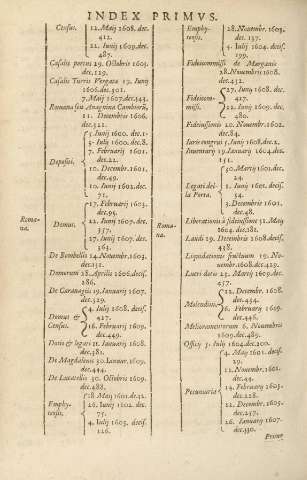 INDEX PRIMVS.
Census.
12. Maij 1608. dec.
412.
22. Iunij 1609. dec.
487.
Casalis porcus 29. Octobris 1603.
dec. 129.
Casalis Turris Vergata 19. Iunij
1606. dec. 301.
7. Maij 1607. dec. 343.
Romana seu Anagnina Cambiorũ,
11. Decembris 1606.
dec. 321.
Depositi.
5. Iunij 1600. dec. 1.
3. Iulij 1600. dec. 8.
17. Februarij 1601.
dec. 22.
10. Decembr. 1601.
dec. 49.
10. Iunij 1602. dec.
71.
Romana.
Domus.
17. Februarij 1603.
dec. 95.
22. Iunij 1607. dec.
357.
27. Iunij 1609. dec.
363.
De Bombellis 14. Nouembr. 1603.
dec. 131.
Domorum 28. Aprilis 1606. decis.
286.
De Carauagijs 19. Ianuarij 1607.
dec. 329.
Domus & Census.
4. Iulij 1608. decis.
427.
16. Februarij 1609.
dec. 449.
Dotis & legati 21. Ianuarij 1608.
dec. 381.
De Magdalenis 30. Ianuar. 1609.
dec. 444.
De Lucatellis 30. Octobris 1609.
dec. 488.
Emphyteusis.
28. Maij 1601. de. 32.
26. Iunij 1602. dec.
75.
4. Iulij 1603. decis.
126.
Romana.
Emphyteusis.
28. Nouembr. 1603.
dec. 137.
4. Iulij 1604. decis.
199.
Fideicommissi de Marganis
28. Nouembris 1608.
dec. 432.
Fideicommissi.
27. Iunij 1608. dec.
422.
22. Iunij 1609. dec.
480.
Fideiussionis 20. Nouembr. 1602.
dec. 84.
Iuris congrui 5. Iunij 1608. dec. 2.
Inuentarij 19. Ianuarij 1604. dec.
151.
Legati della Porta.
30. Martij 1601. dec.
24.
21. Iunij 1601. decis.
34.
3. Decembris 1601.
dec. 48.
Liberationis à fideiussione 31. Maij
1604. dec. 181.
Laudi 19. Decembris 1608. decis.
438.
Liquidationis fructuum 19. Nouembr. 1608. dec. 429.
Lucri dotis 23. Martij 1609. dec.
457.
Molendini.
12. Decembr. 1608.
dec. 434.
16. Februarij 1609.
dec. 446.
Melioramentorum 6. Nouembris
1609. dec. 489.
Officij 5. Iulij 1604. dec. 200.
Pecuniaria
4. Maij 1601. decis.
29.
12. Nouembr. 1601.
dec. 43.
14. Februarij 1605.
dec. 228.
12. Decembr. 1605.
dec. 257.
26. Ianuarij 1607.
dec. 330.
Primæ